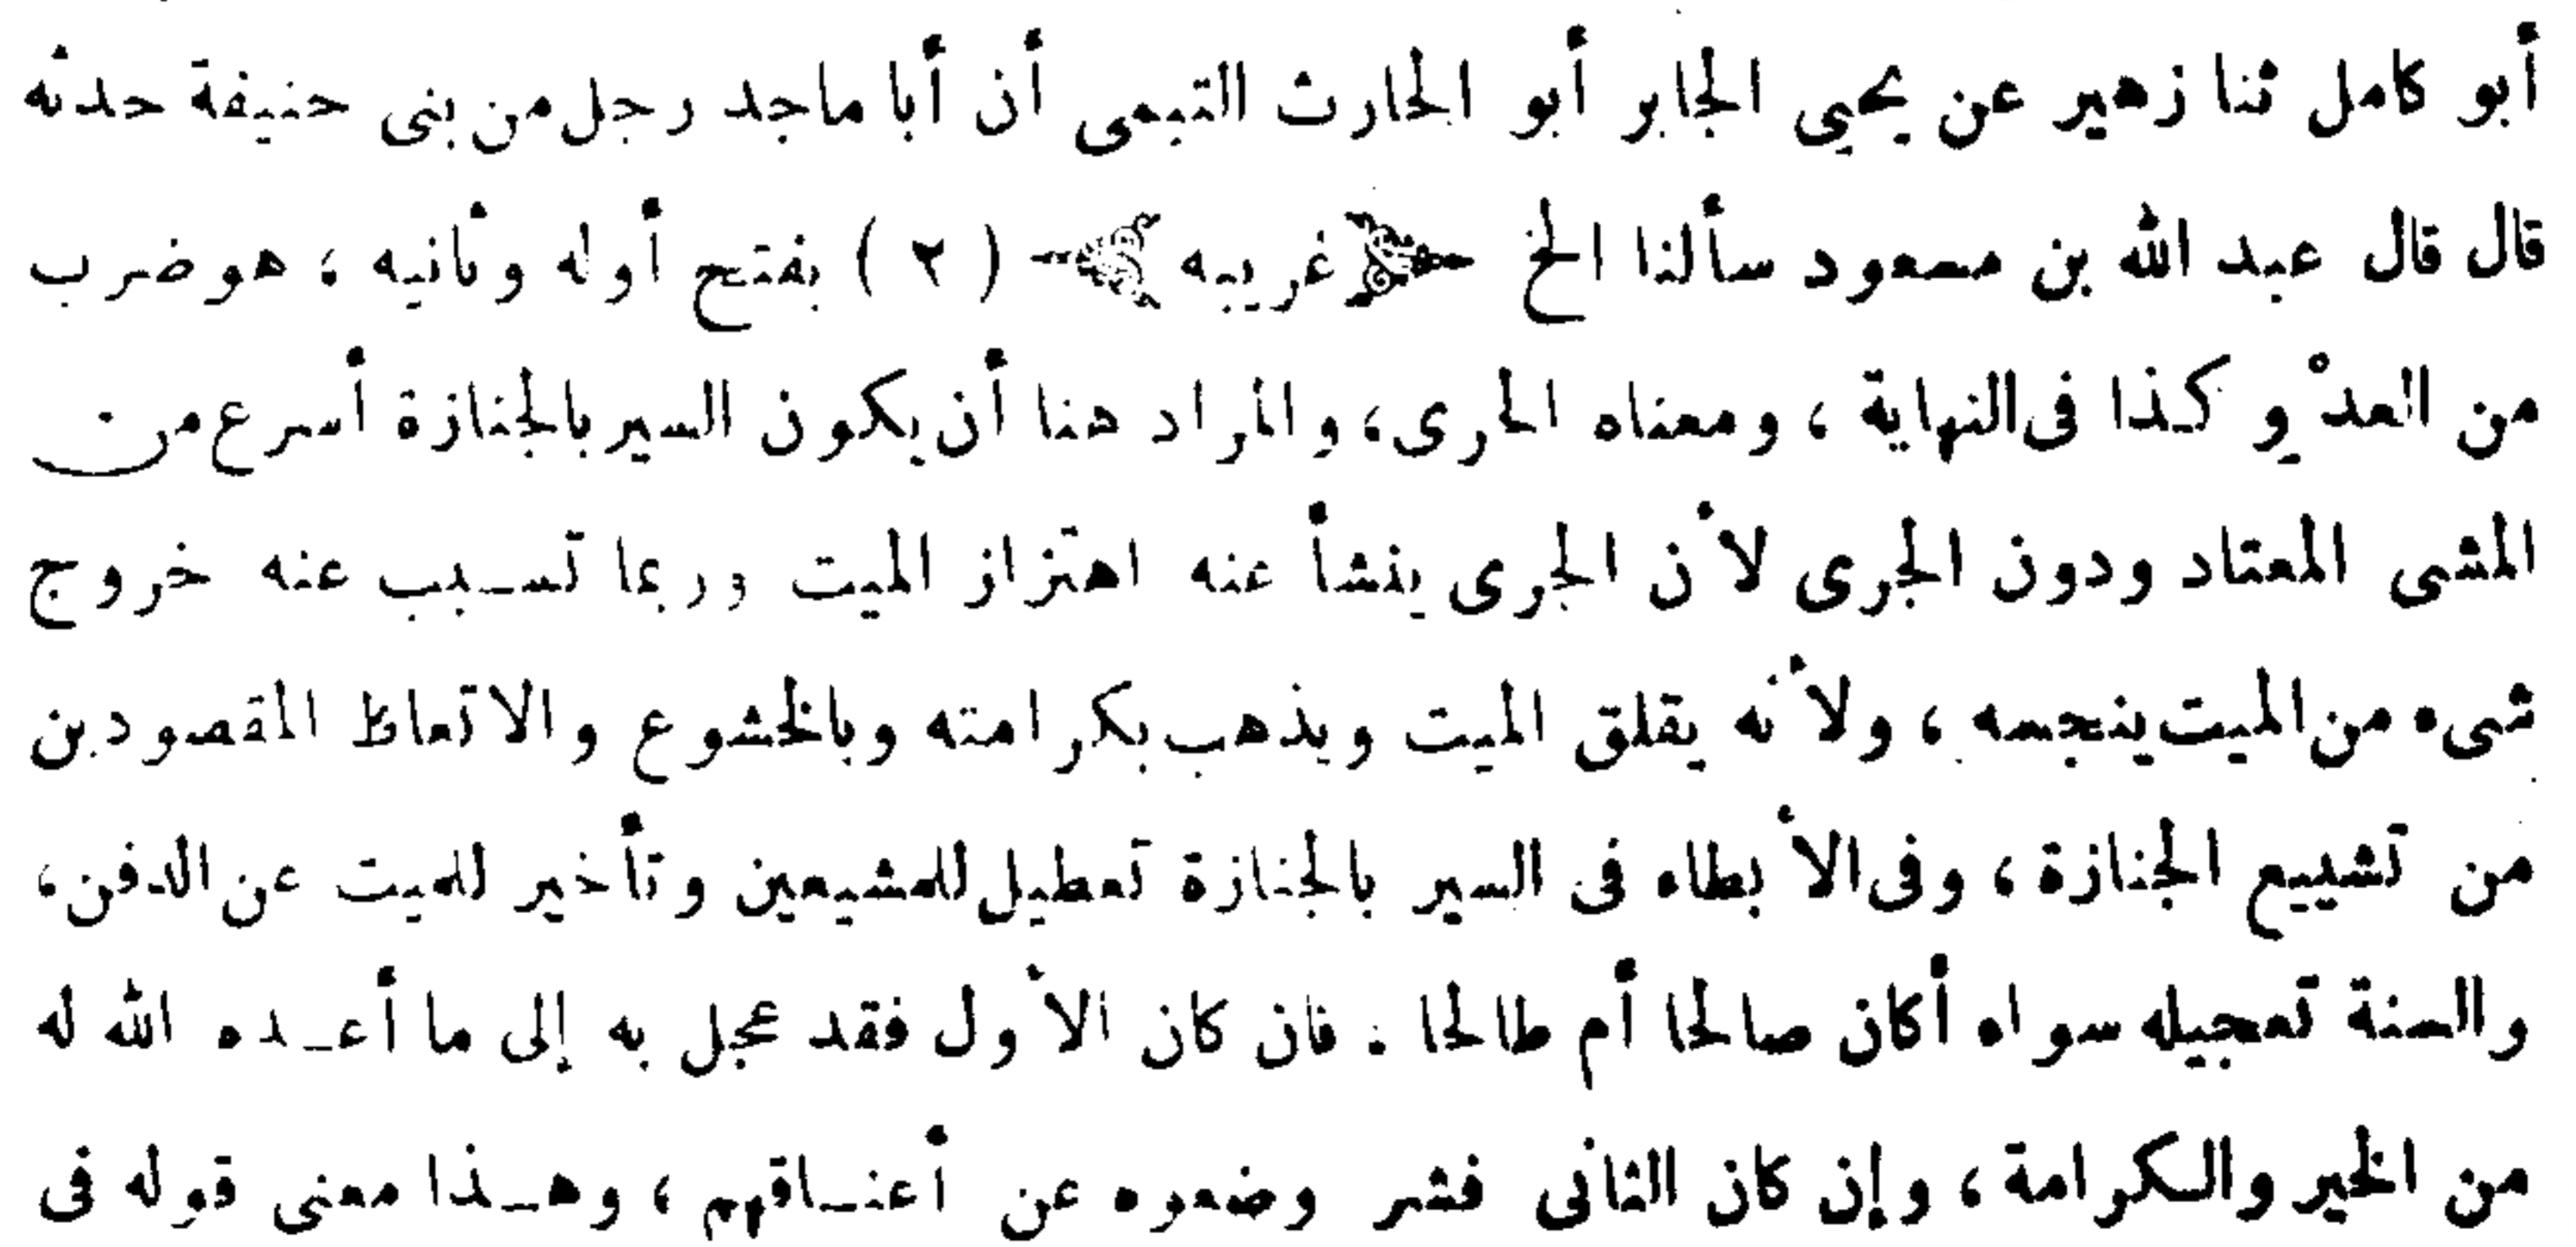 أبو كامل ثنا زهير عن يحيى الجابر أبو الحارث التيمى أن أبا ماجد رجل من بنى حنيفة حدثه
قال قال عبد الله بن مسعود سألنا الخ ﴿غريبه﴾ (٢) بفتح أوله وثانيه ، هو ضرب
من العدْو كذا فى النهاية ، ومعناه الجرى، والمراد هنا أن يكون السير بالجنازة أسرع من
المشى المعتاد ودون الجرى لأن الجرى ينشأ عنه اهتزاز الميت وربما تسبب عنه خروج
شىء من الميت ينجسه ، ولأنه يقلق الميت ويذهب بكرامته وبالخشوع والاتعاظ المقصودين
من تشييع الجنازة ، وفى الأبطاء فى السير بالجنازة تعطيل للمشيعين وتأخير للميت عن الدفن،
والسنة تعجيله سواء أكان صالحا أم طالحا . فان كان الأول فقد عجل به إلى ما أعده الله له
من الخير والكرامة ، وإن كان الثانى فشر وضعوه عن أعناقهم ، وهذا معنى قوله فى